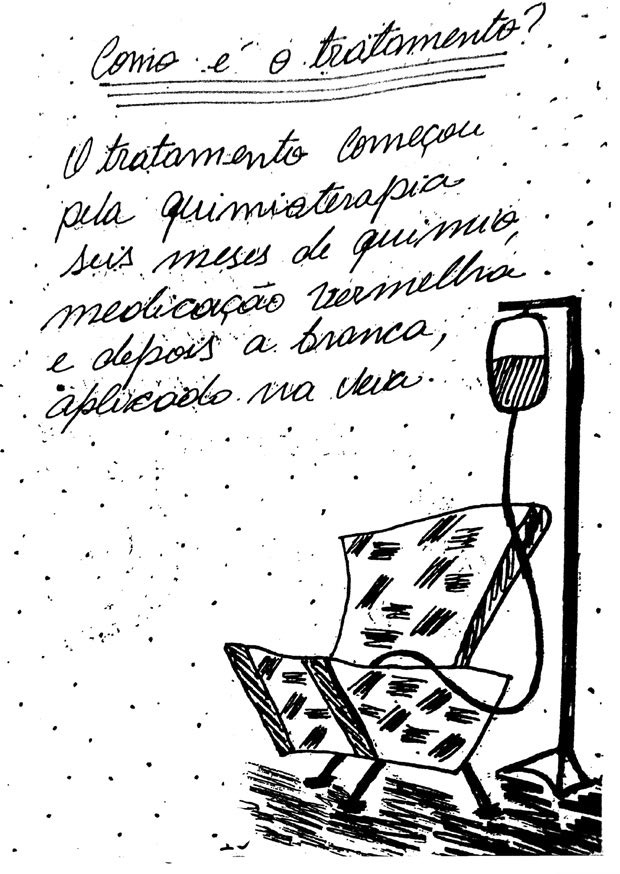 Como é o tratamento?
O tratamento começou
pela quimioterapia
seis meses de quimio,
medicação vermelha
e depois a branca,
aplicado na veia.